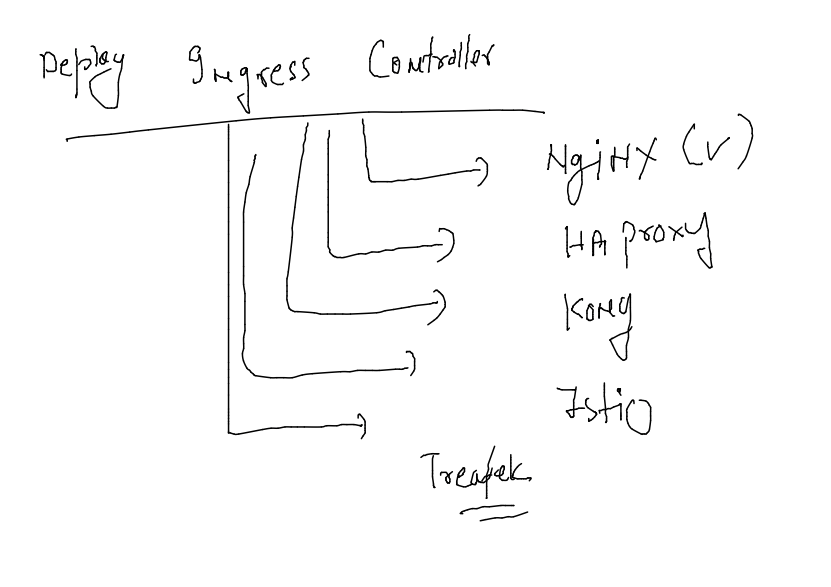 Deploy Ingress Controller
NgiNX (v)
HA proxy
Kong
Istio
Treafek